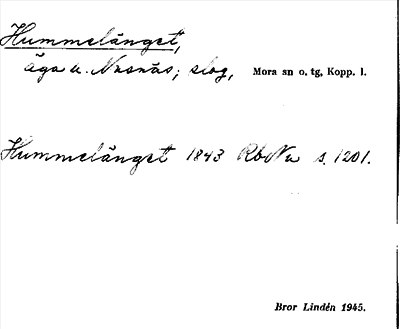 Hummelänget,
äga u. Nusnäs; slog, Mora sn o. tg, Kopp. l.
Hummelänget 1843 RbNu s. 1201.
Bror Lindén 1945.